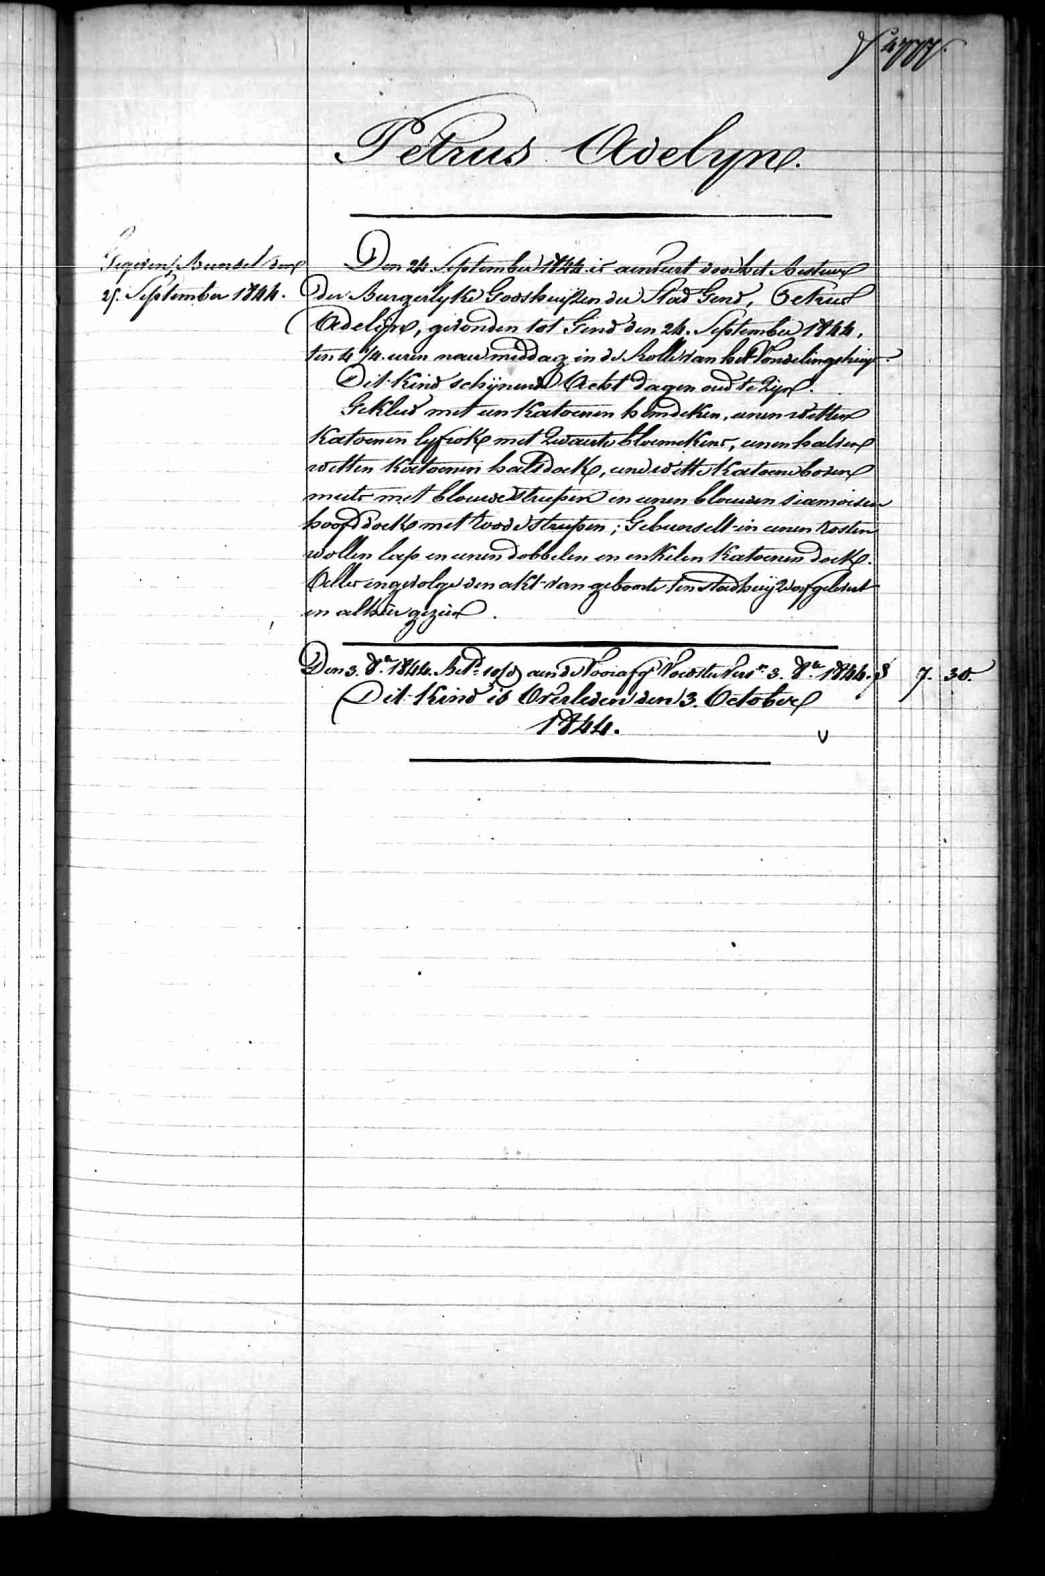 f° 477.
Petrus Adelyn.
Gegeven Bundel den
25. September 1844.
Den 24 September 1844 is aenveirt door het Bestuer
der Burgerlyke Godshuijzen der Stad Gend, Petrus
Adelyn, gevonden tot Gend den 24. September 1844,
ten 4 3/4 uren naer middag in de Rolle van het Vondelingshuijs.
Dit Kind schijnende Acht dagen oud te zijn.
Gekleed met een Katoenen hemdeken, eenen witten
Katoenen lyfrok met Zwarte bloemekens, eenen halven
witten Katoenen halsdoek, eene witte Katoene boven
muts met blouwe streepen en eenen blouwen siamoisen
hoofddoek met roode streepen; Gebuerselt in eenen rosten
wollen lap en eenen dobbelen en enkelen Katoenen doek.
Alles ingevolge den akt van geboorte ten Stadhuijze afgelevert
en alhier gezien.
Den 3. 8er 1844. Betd 10/d aende Voorafge Voedster Verst 3. 8er 1844. f 7. 30.
Dit Kind is Overleden den 3. October
1844.